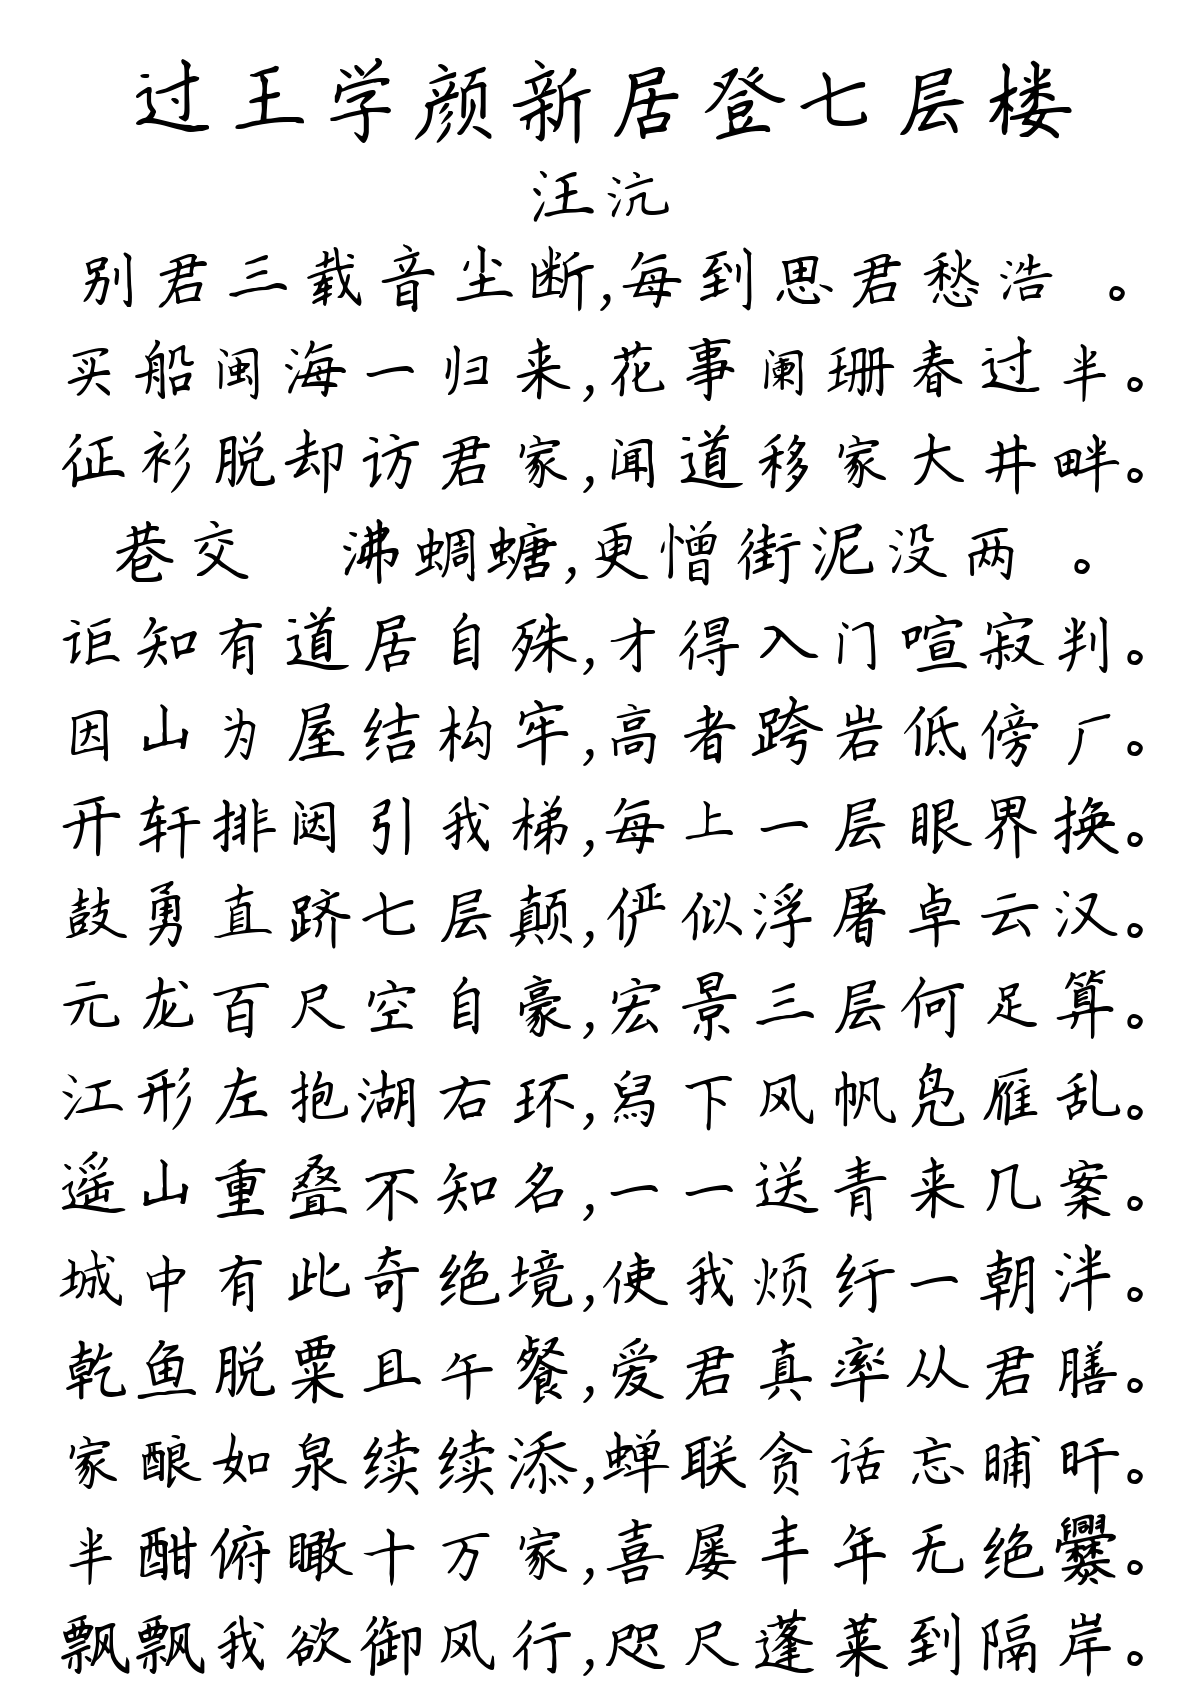 过王学颜新居登七层楼
汪沆
别君三载音尘断,每到思君愁浩 。
买船闽海一归来,花事阑珊春过半。
征衫脱却访君家,闻道移家大井畔。
巷交 沸蜩螗,更憎街泥没两 。
讵知有道居自殊,才得入门喧寂判。
因山为屋结构牢,高者跨岩低傍厂。
开轩排闼引我梯,每上一层眼界换。
鼓勇直跻七层颠,俨似浮屠卓云汉。
元龙百尺空自豪,宏景三层何足算。
江形左抱湖右环,舄下风帆凫雁乱。
遥山重叠不知名,一一送青来几案。
城中有此奇绝境,使我烦纡一朝泮。
乾鱼脱粟且午餐,爱君真率从君膳。
家酿如泉续续添,蝉联贪话忘晡旰。
半酣俯瞰十万家,喜屡丰年无绝爨。
飘飘我欲御风行,咫尺蓬莱到隔岸。